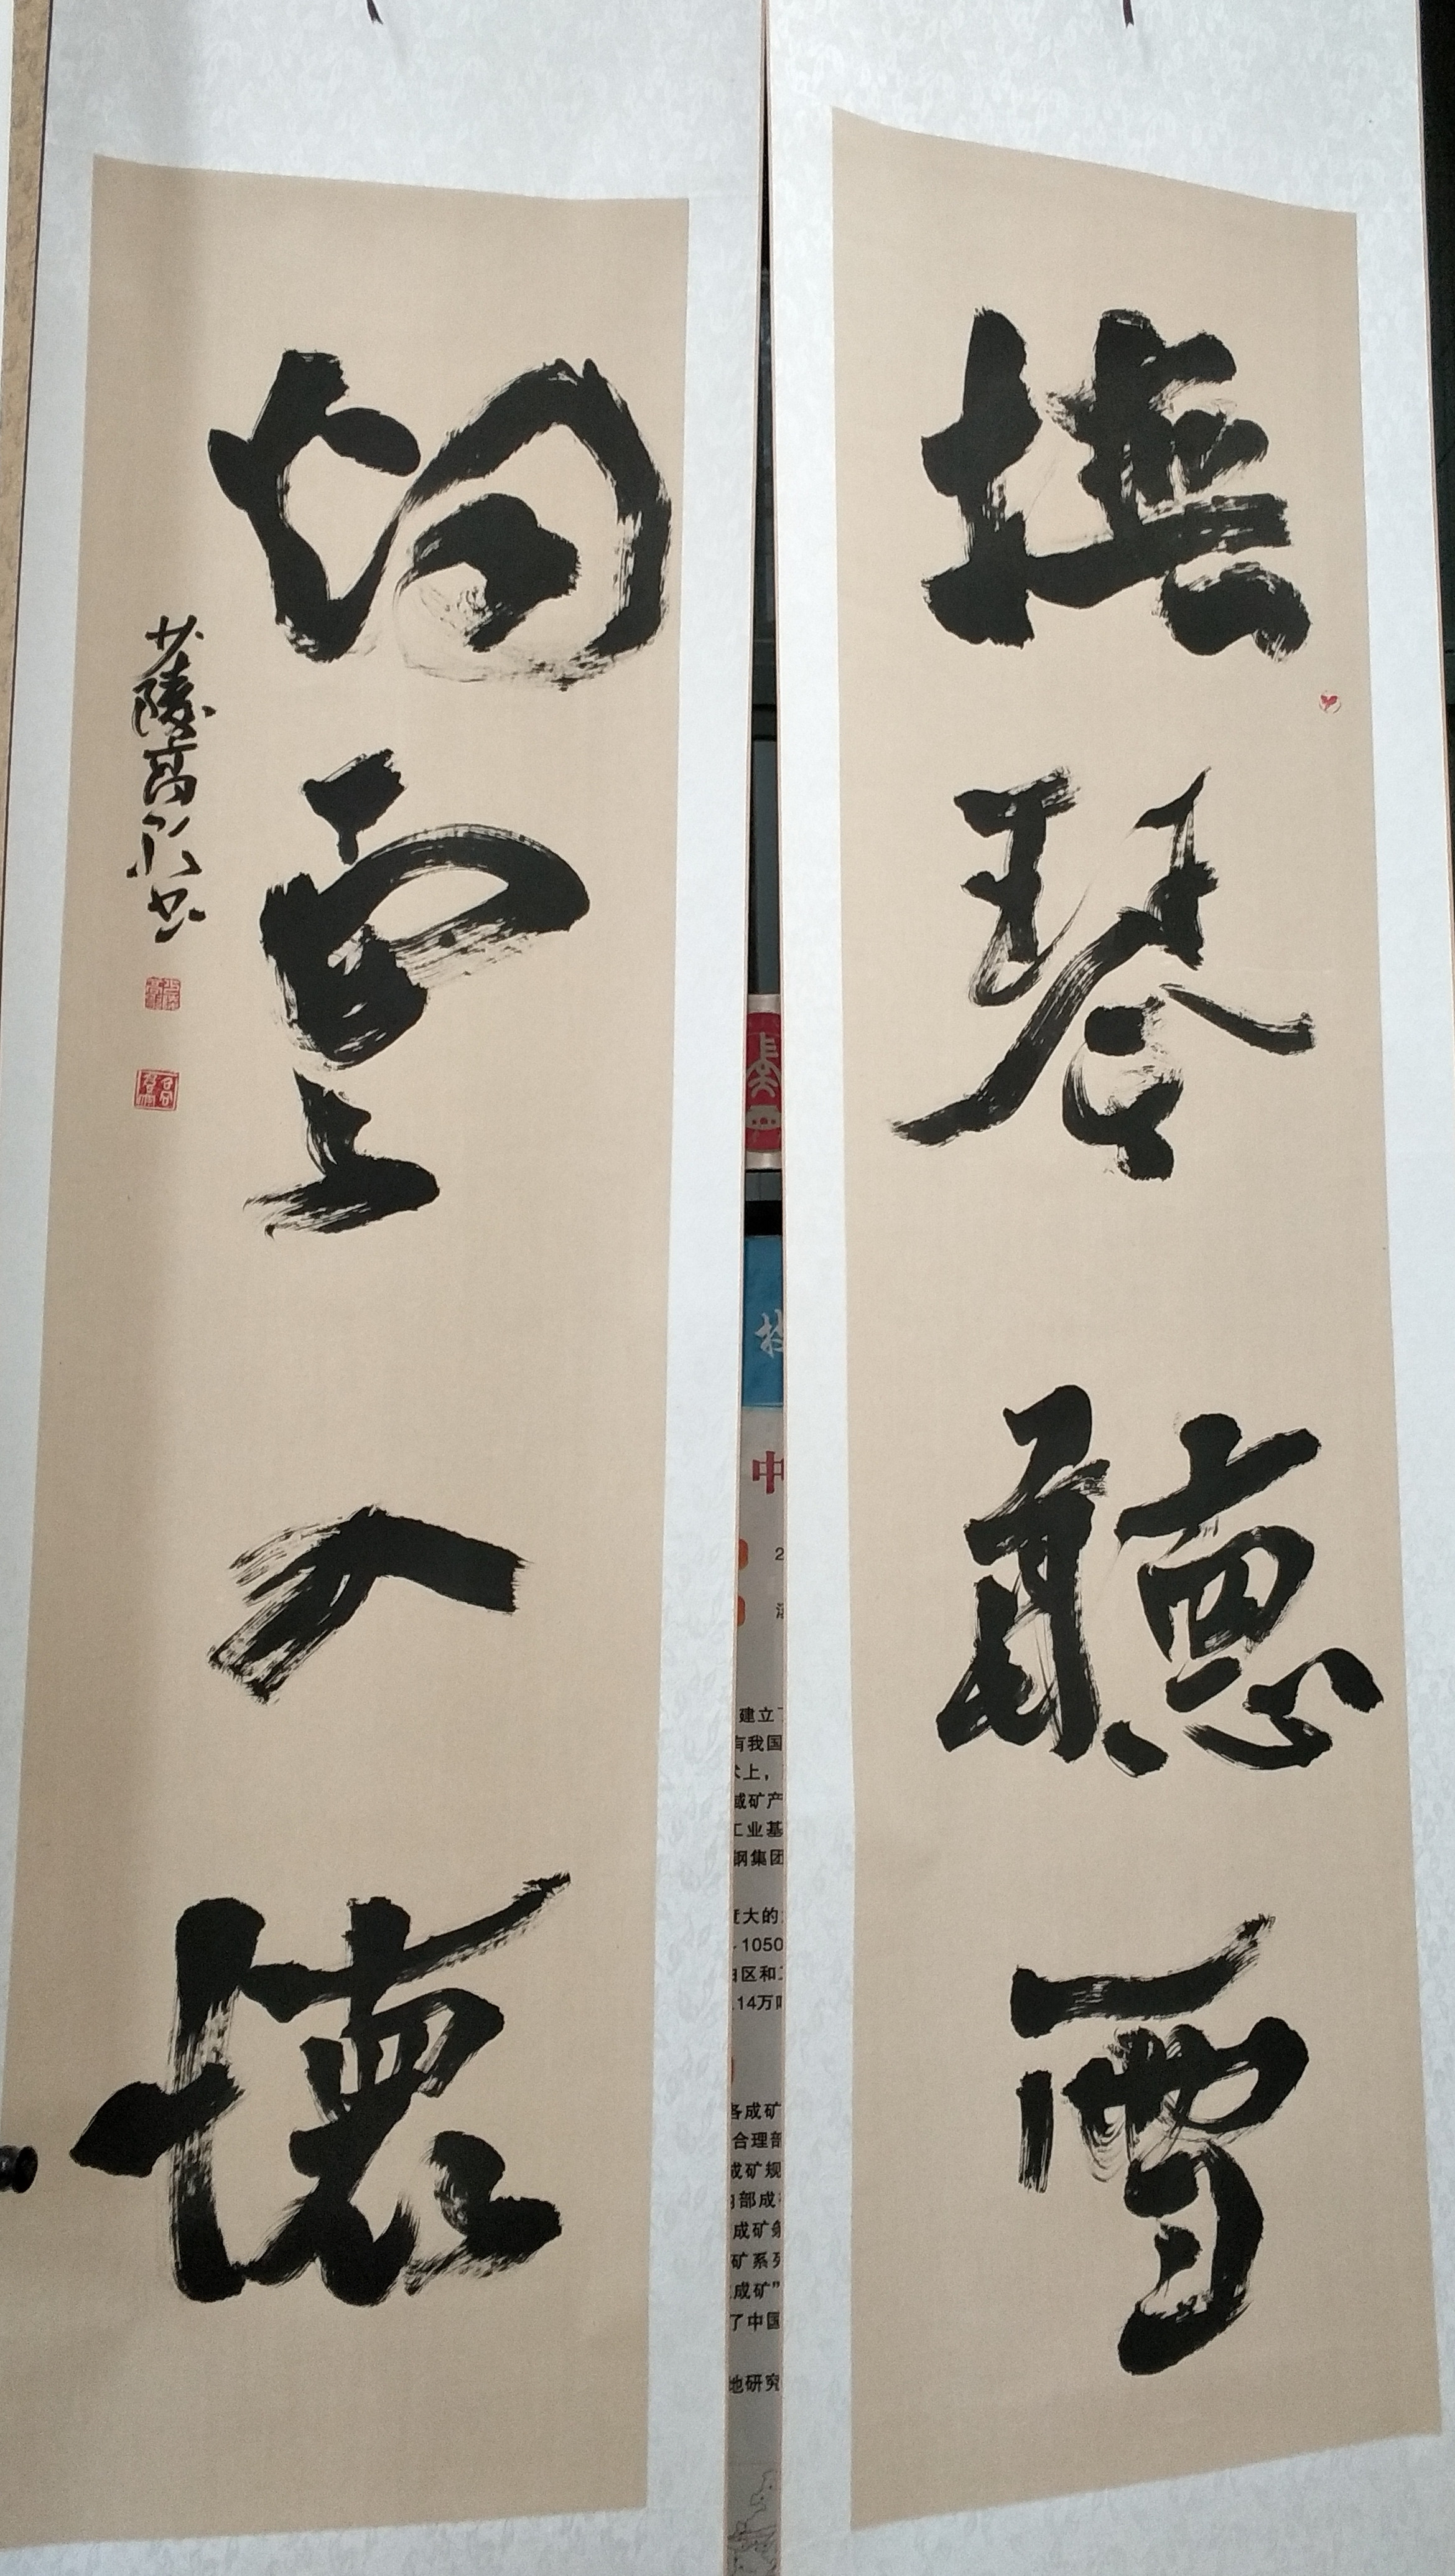 撫琴聽雪
雲入懷
陵高 书
中
建立
有我国
上，
域矿产
工业基
钢集团
度大的
1050
区和
14万
各成矿
合理部
成矿规
部成
成矿
矿系列
成矿”
了中国
地研究